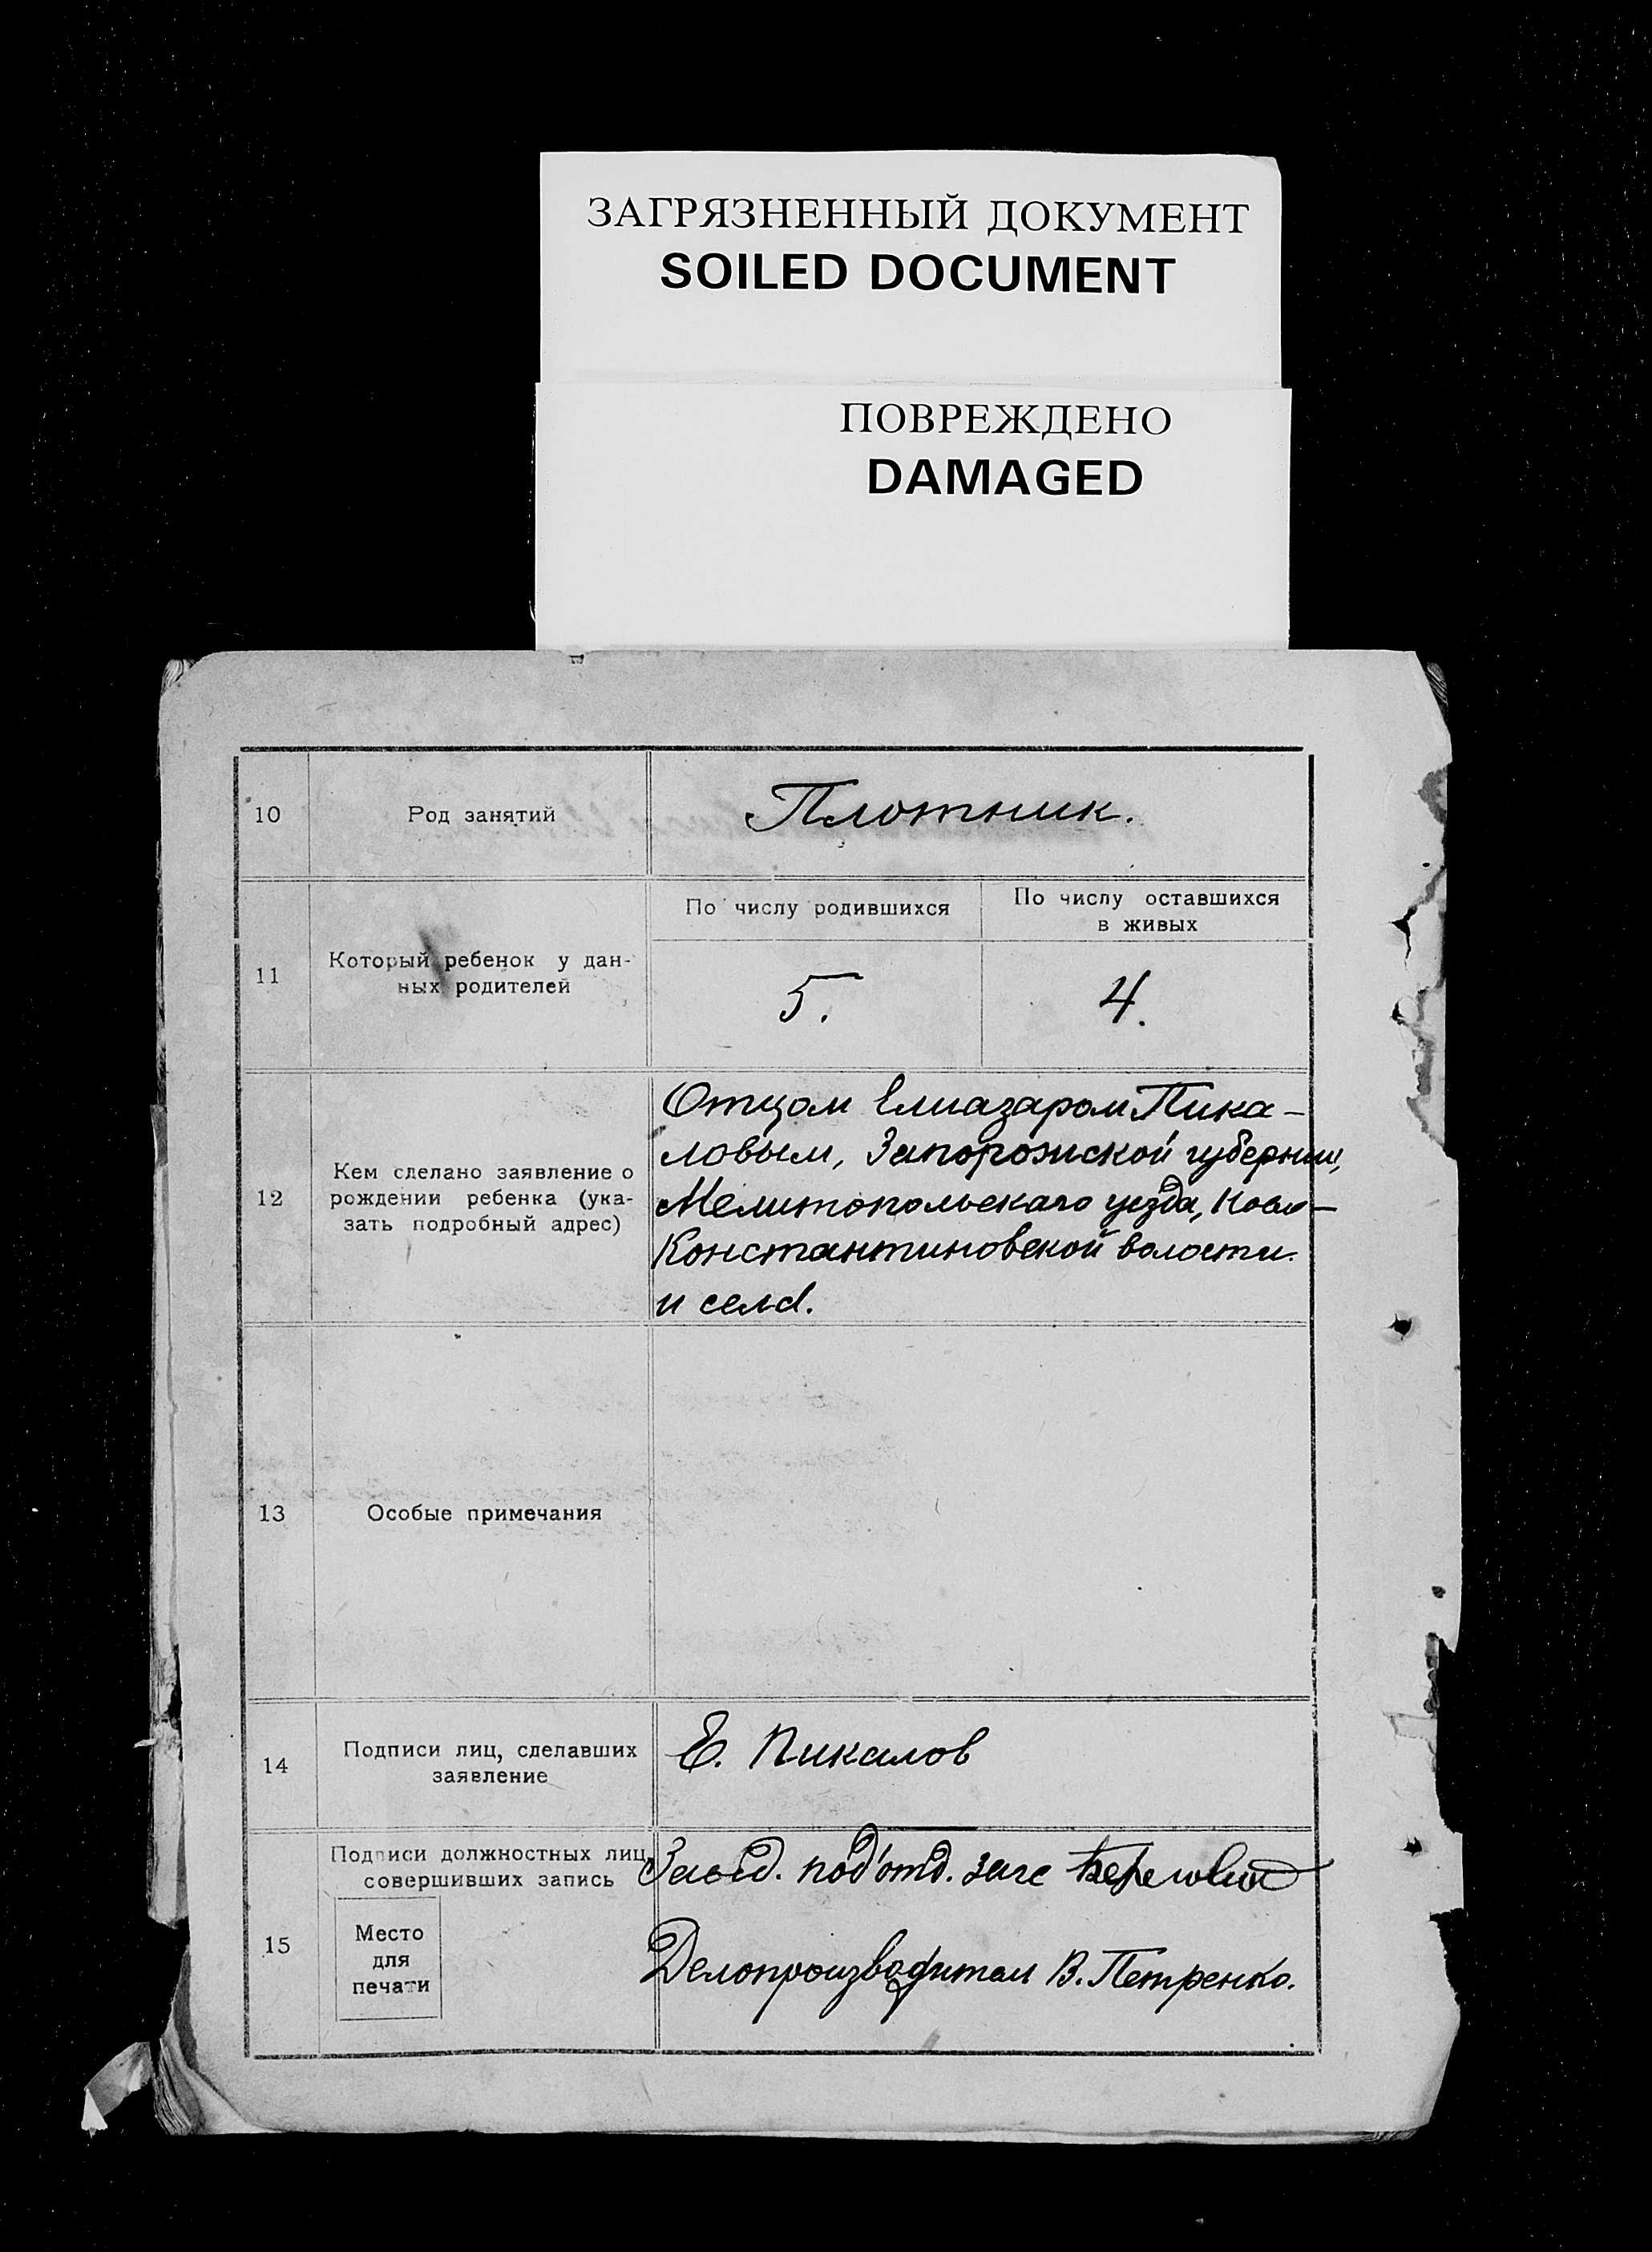 ЗАГРЯЗНЕННЫЙ ДОКУМЕНТ
SOILED DOCUMENT
ПОВРЕЖДЕНО
DAMAGED
10
Род занятий
Плотник.
11
Который ребенок у дан-
ных родителей
По числу родившихся
По числу оставшихся
в живых
5.
4.
12
Кем сделано заявление о
рождении ребенка (ука-
зать подробный адрес)
Отцом Елиазаром Пика-
ловым, Запорожской губернии,
Мелитопольскаго уезда,
Константиновской волости
и села.
13
Особые примечания
14
Подписи лиц, сделавших
заявление
Е. Пикалов
15
Подписи должностных лиц,
совершивших запись
Место
для
печати
Завед. под'отд. загс
Делопроизводитель В. Петренко.